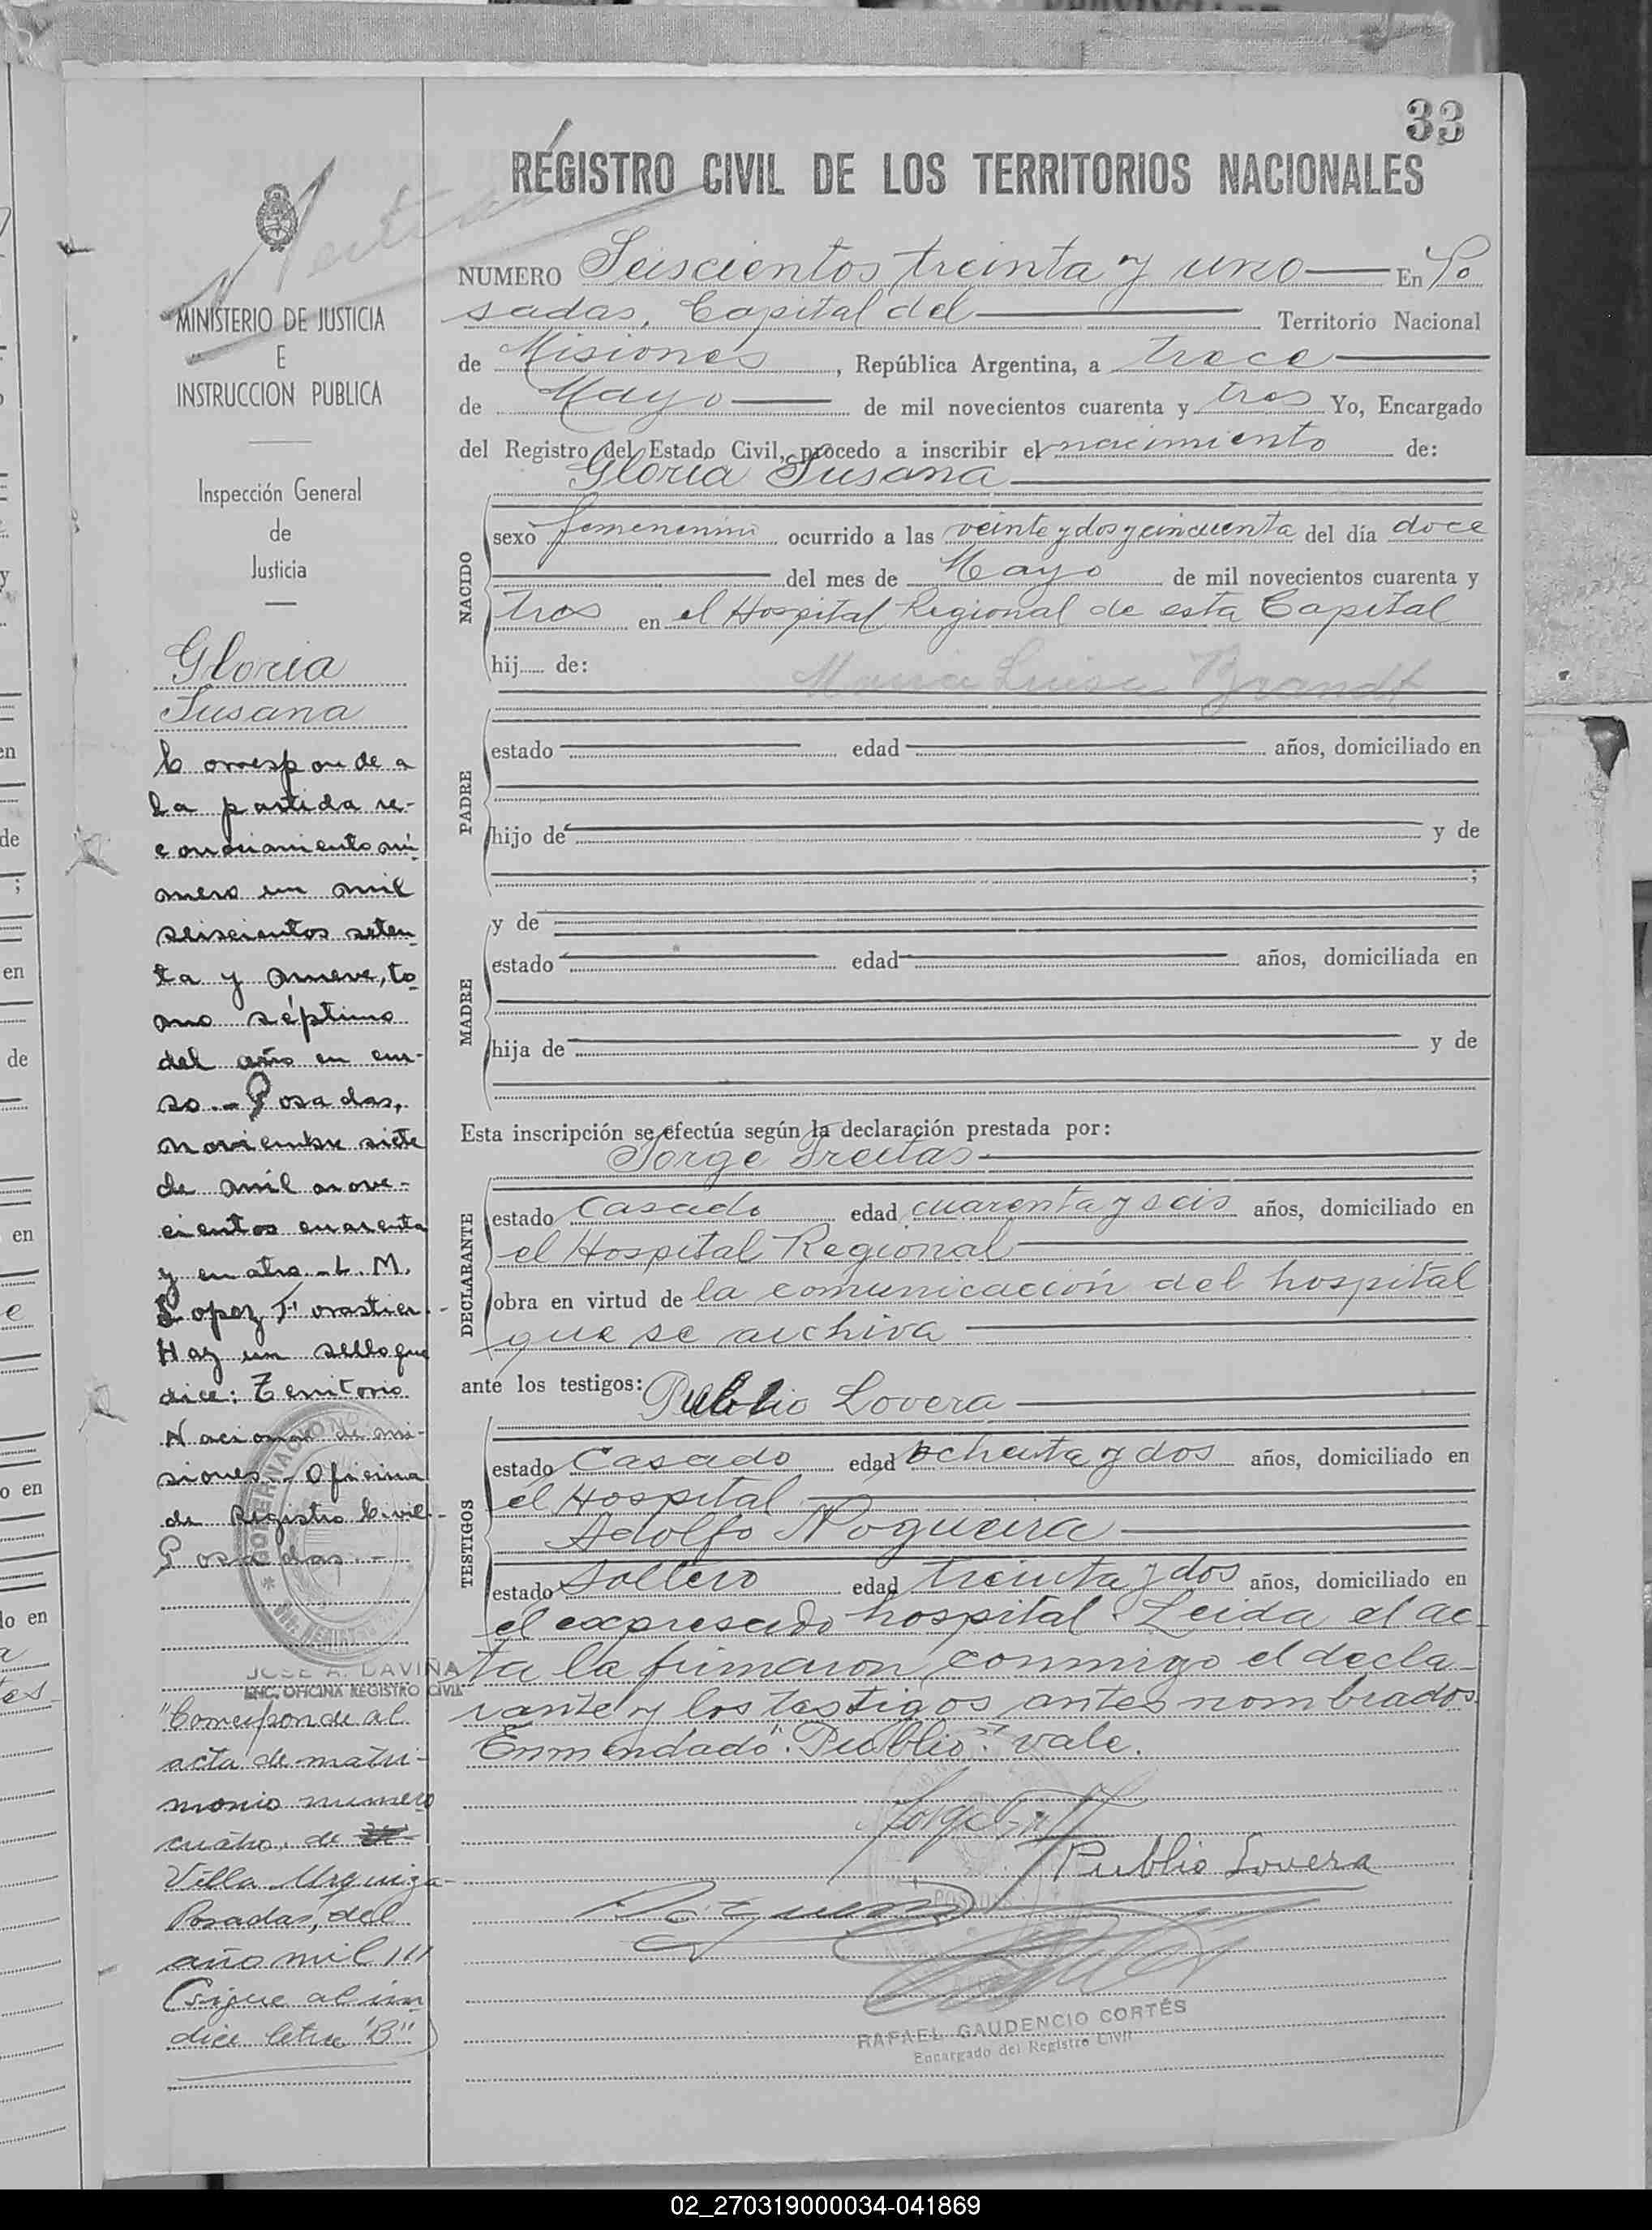 33
REGISTRO CIVIL DE LOS TERRITORIOS NACIONALES
MINISTERIO DE JUSTICIA
E
INSTRUCCION PUBLICA
Inspección General
de
Justicia
Gloria
Susana
Corresponde a
la partida re-
conocimiento nú-
mero un mil
seiscientos seten-
ta y nueve, to-
mo séptimo
del año en cur-
so.- Posadas,
noviembre siete
de mil nove-
cientos cuarenta
y cuatro - L. M.
Lopez Forastier.-
Hay un sello que
dice: Territorio
Nacional de Mi-
siones.- Oficina
de Registro Civil.-
Posadas.-
JOSE A. DAVIÑA
ENC. OFICINA REGISTRO CIVIL
"Corresponde al
acta de matri-
monio numero
cuatro, de
Villa Urquiza-
Posadas, del
año mil
(sigue al in-
dice letra "B")
NUMERO Seiscientos treinta y uno En Po
sadas, Capital del Territorio Nacional
de Misiones, República Argentina, a trece
de Mayo de mil novecientos cuarenta y tres Yo, Encargado
del Registro del Estado Civil, procedo a inscribir el nacimiento de:
Gloria Susana
NACIDO
sexo femenenino ocurrido a las veinte y dos y cincuenta del día doce
del mes de Mayo de mil novecientos cuarenta y
tres en el Hospital Regional de esta Capital
hij de:
Maria Luisa Brandt
PADRE
estado edad años, domiciliado en
hijo de y de
;
MADRE
y de
estado edad años, domiciliada en
hija de y de
Esta inscripción se efectúa según la declaración prestada por:
Jorge Freitas
DECLARANTE
estado Casado edad cuarenta y seis años, domiciliado en
el Hospital Regional
obra en virtud de la comunicación del hospital
que se archiva
ante los testigos: Publio Lovera
TESTIGOS
estado Casado edad ochenta y dos años, domiciliado en
el Hospital
Adolfo Nogueira
estado Soltero edad treinta y dos años, domiciliado en
el expresado hospital. Leida el ac
ta la firmaron conmigo el decla-
rante y los testigos antes nombrados.
Enmendado: "Publio": vale.
Publio Lovera
RAFAEL GAUDENCIO CORTÉS
Encargado del Registro Civil
02_270319000034-041869